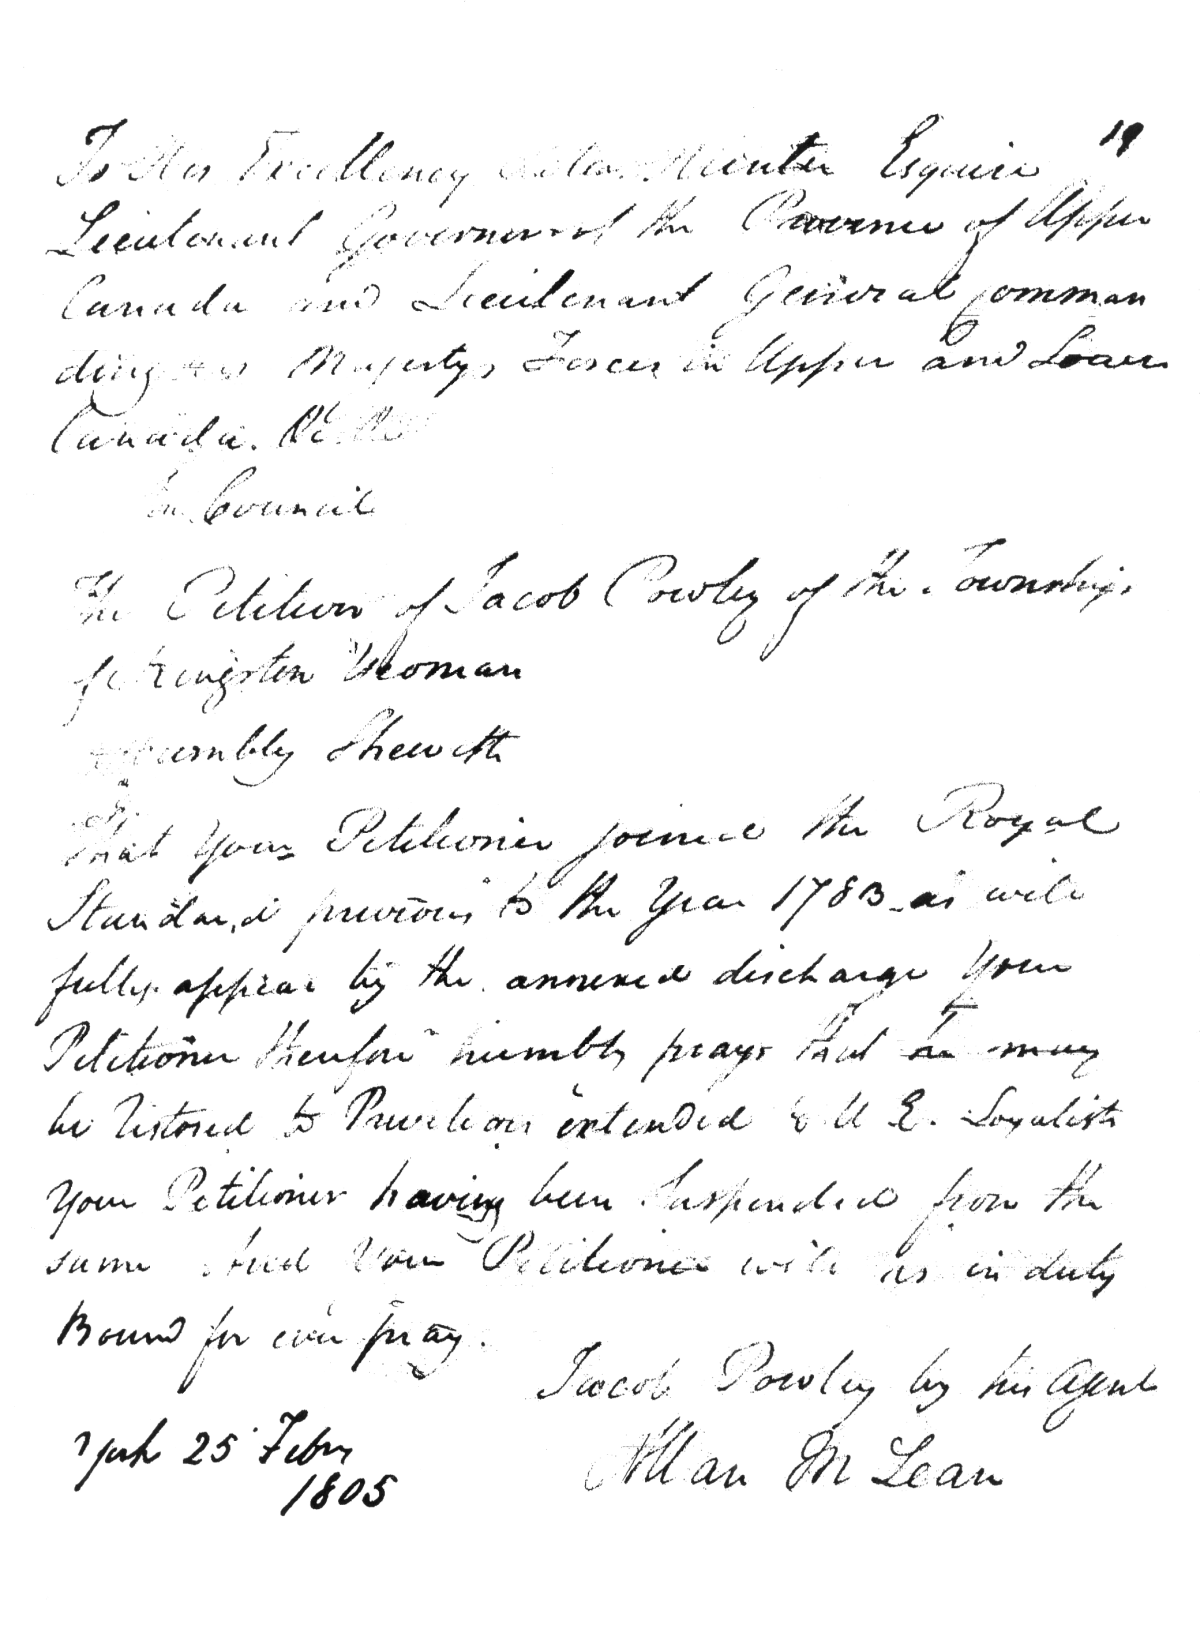 19
To His Excellency Peter Hunter Esquire
Lieutenant Governor of the Province of Upper
Canada and Lieutenant General comman
ding His Majestys Forces in Upper and Lower
Canada. &c &c
In Council
The Petition of Jacob Powley of the Township
of Kingston Yeoman
Humbly Sheweth
That Your Petitioner joined the Royal
Standard previous to the Year 1783 as will
fully appear by the annexed discharge Your
Petitioner therefore humbly prays that he may
be restored to Privileges extended to U E. Loyalists
Your Petitioner having been Suspended from the
same And Your Petitioner will as in duty
Bound for ever pray.
Jacob Powley by his Agent
Allan McLean
York 25 Febry
1805